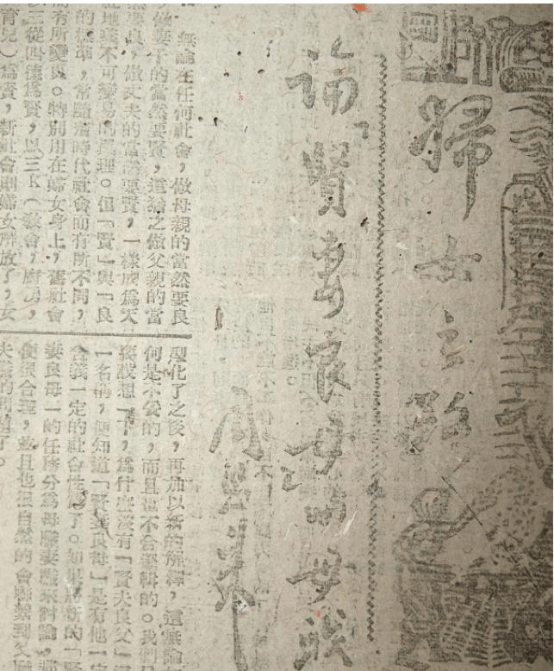 婦女之路
論「賢妻良母」與母職
周恩來
無論在任何社會，做母親的當然要良
做妻子的當然要賢，這猶之做父親的當
要良，做丈夫的當然要賢，一樣成為天
經地義不可變易的真理。但「賢」與「良
的標準，常隨着時代社會而有所不同，
而有所變異。特別用在婦女身上，舊社會
以三從四德為賢，以三K（教會，廚房，
育兒）為賢，新社會則婦女解放了，女
型化了之後，再加以新的解釋，這無論
何是不妥的，而且也不合邏輯的。我們只
要設想一下，為什麼沒有「賢夫良父」
一名稱，便知道「賢妻良母」是有他一定
含義一定的社會性的了。如果將新的「賢
妻良母」的任務分為母職妻職來討論，
便很合理，並且也很自然的會聯繫到父
夫職的問題了。